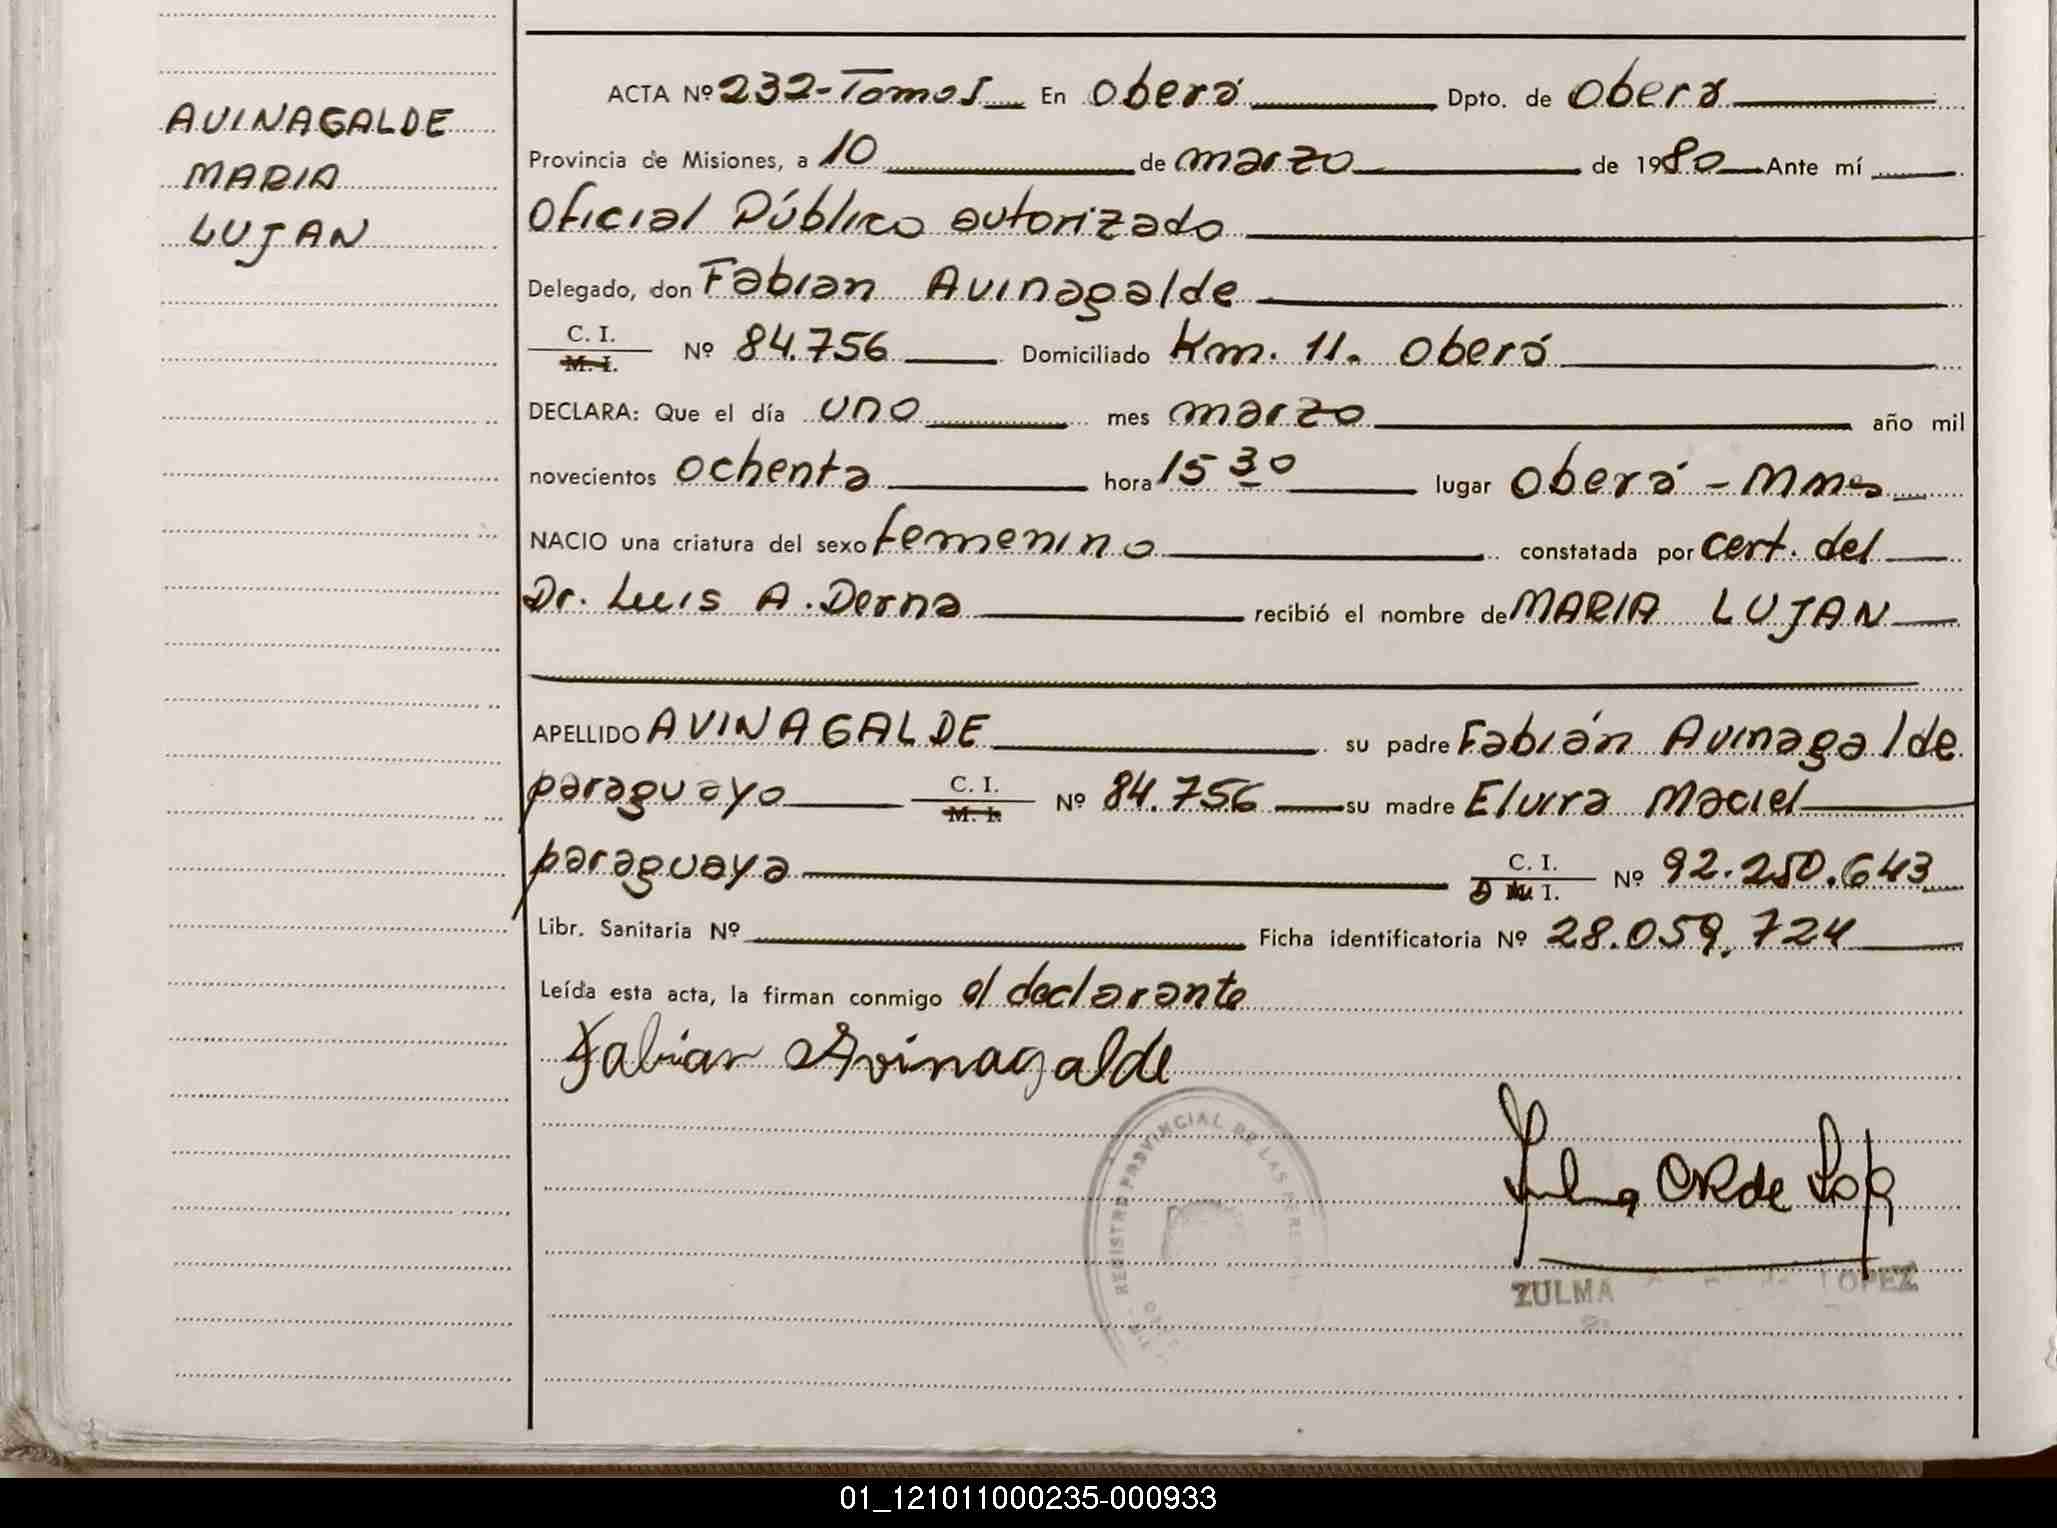 AVINAGALDE
MARIA
LUJAN
ACTA Nº 232-Tomo I En Oberá Dpto. de Oberá
Provincia de Misiones, a 10 de marzo de 1980 Ante mí
Oficial Público autorizado
Delegado, don Fabian Avinagalde
C. I.
M. I. Nº 84.756 Domiciliado Km. 11. Oberá
DECLARA: Que el día uno mes marzo año mil
novecientos ochenta hora 15 30 lugar Oberá - Mnes
NACIO una criatura del sexo femenino constatada por cert. del
Dr. Luis A. Derna recibió el nombre de MARIA LUJAN
APELLIDO AVINAGALDE su padre Fabián Avinagalde
paraguayo C. I. M. I. Nº 84.756 su madre Elvira Maciel
paraguaya C. I. D N I. Nº 92.250.643
Libr. Sanitaria Nº Ficha identificatoria Nº 28.059.724
Leída esta acta, la firman conmigo el declarante
Fabian Avinagalde
REGISTRO PROVINCIAL DE LAS
Zulma de
ZULMA LOPEZ
01_121011000235-000933